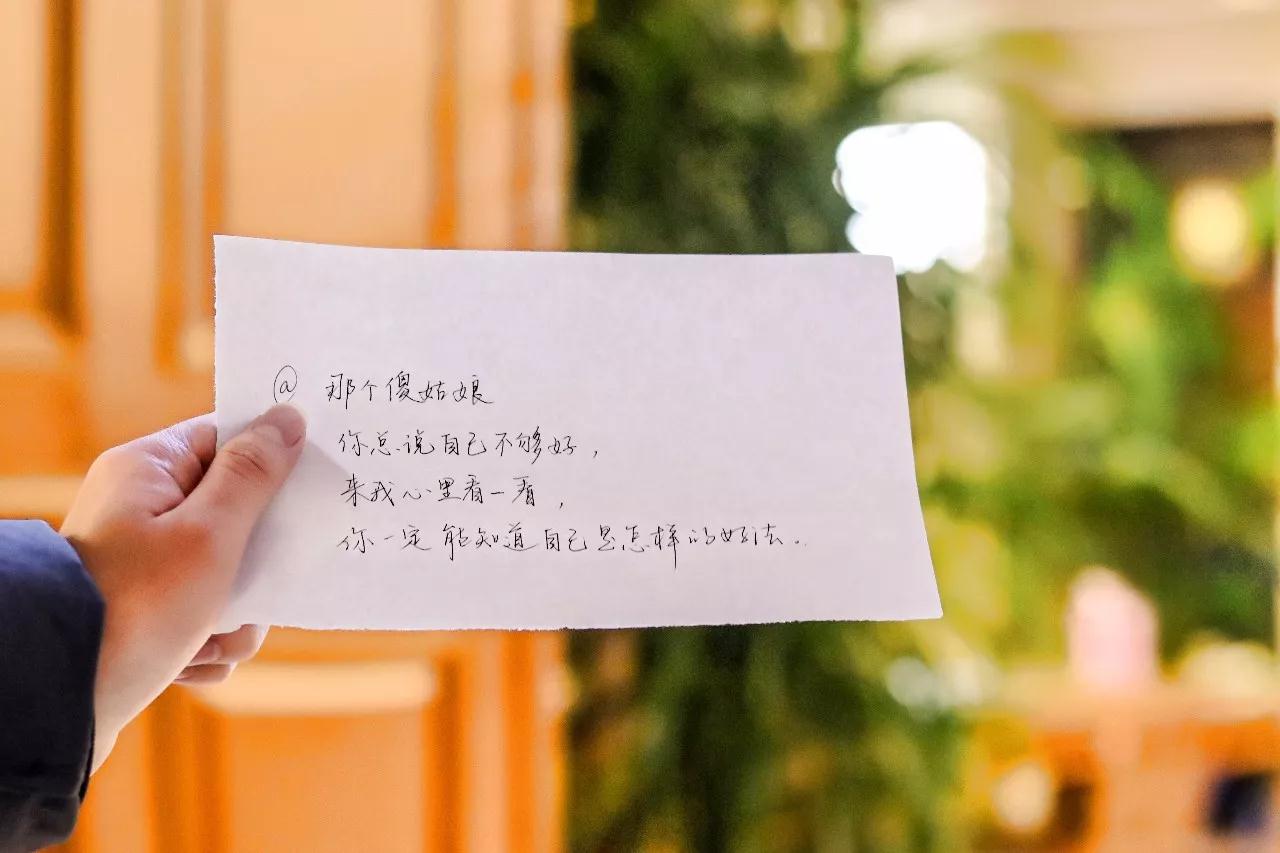 @ 那个傻姑娘
你总说自己不够好，
来我心里看一看，
你一定能知道自己是怎样的好法。